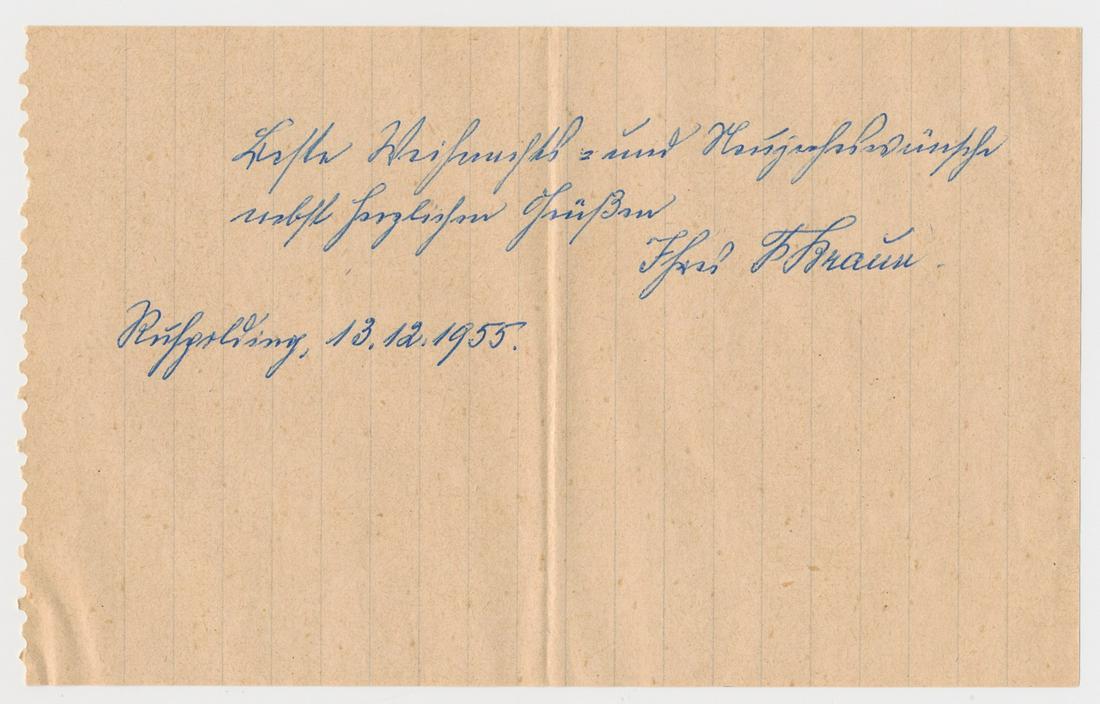 Beste Weihnachts- und Neujahrswünsche
nebst herzlichen Grüßen
Ihres F Braun.
Ruhpolding, 13.12.1955.